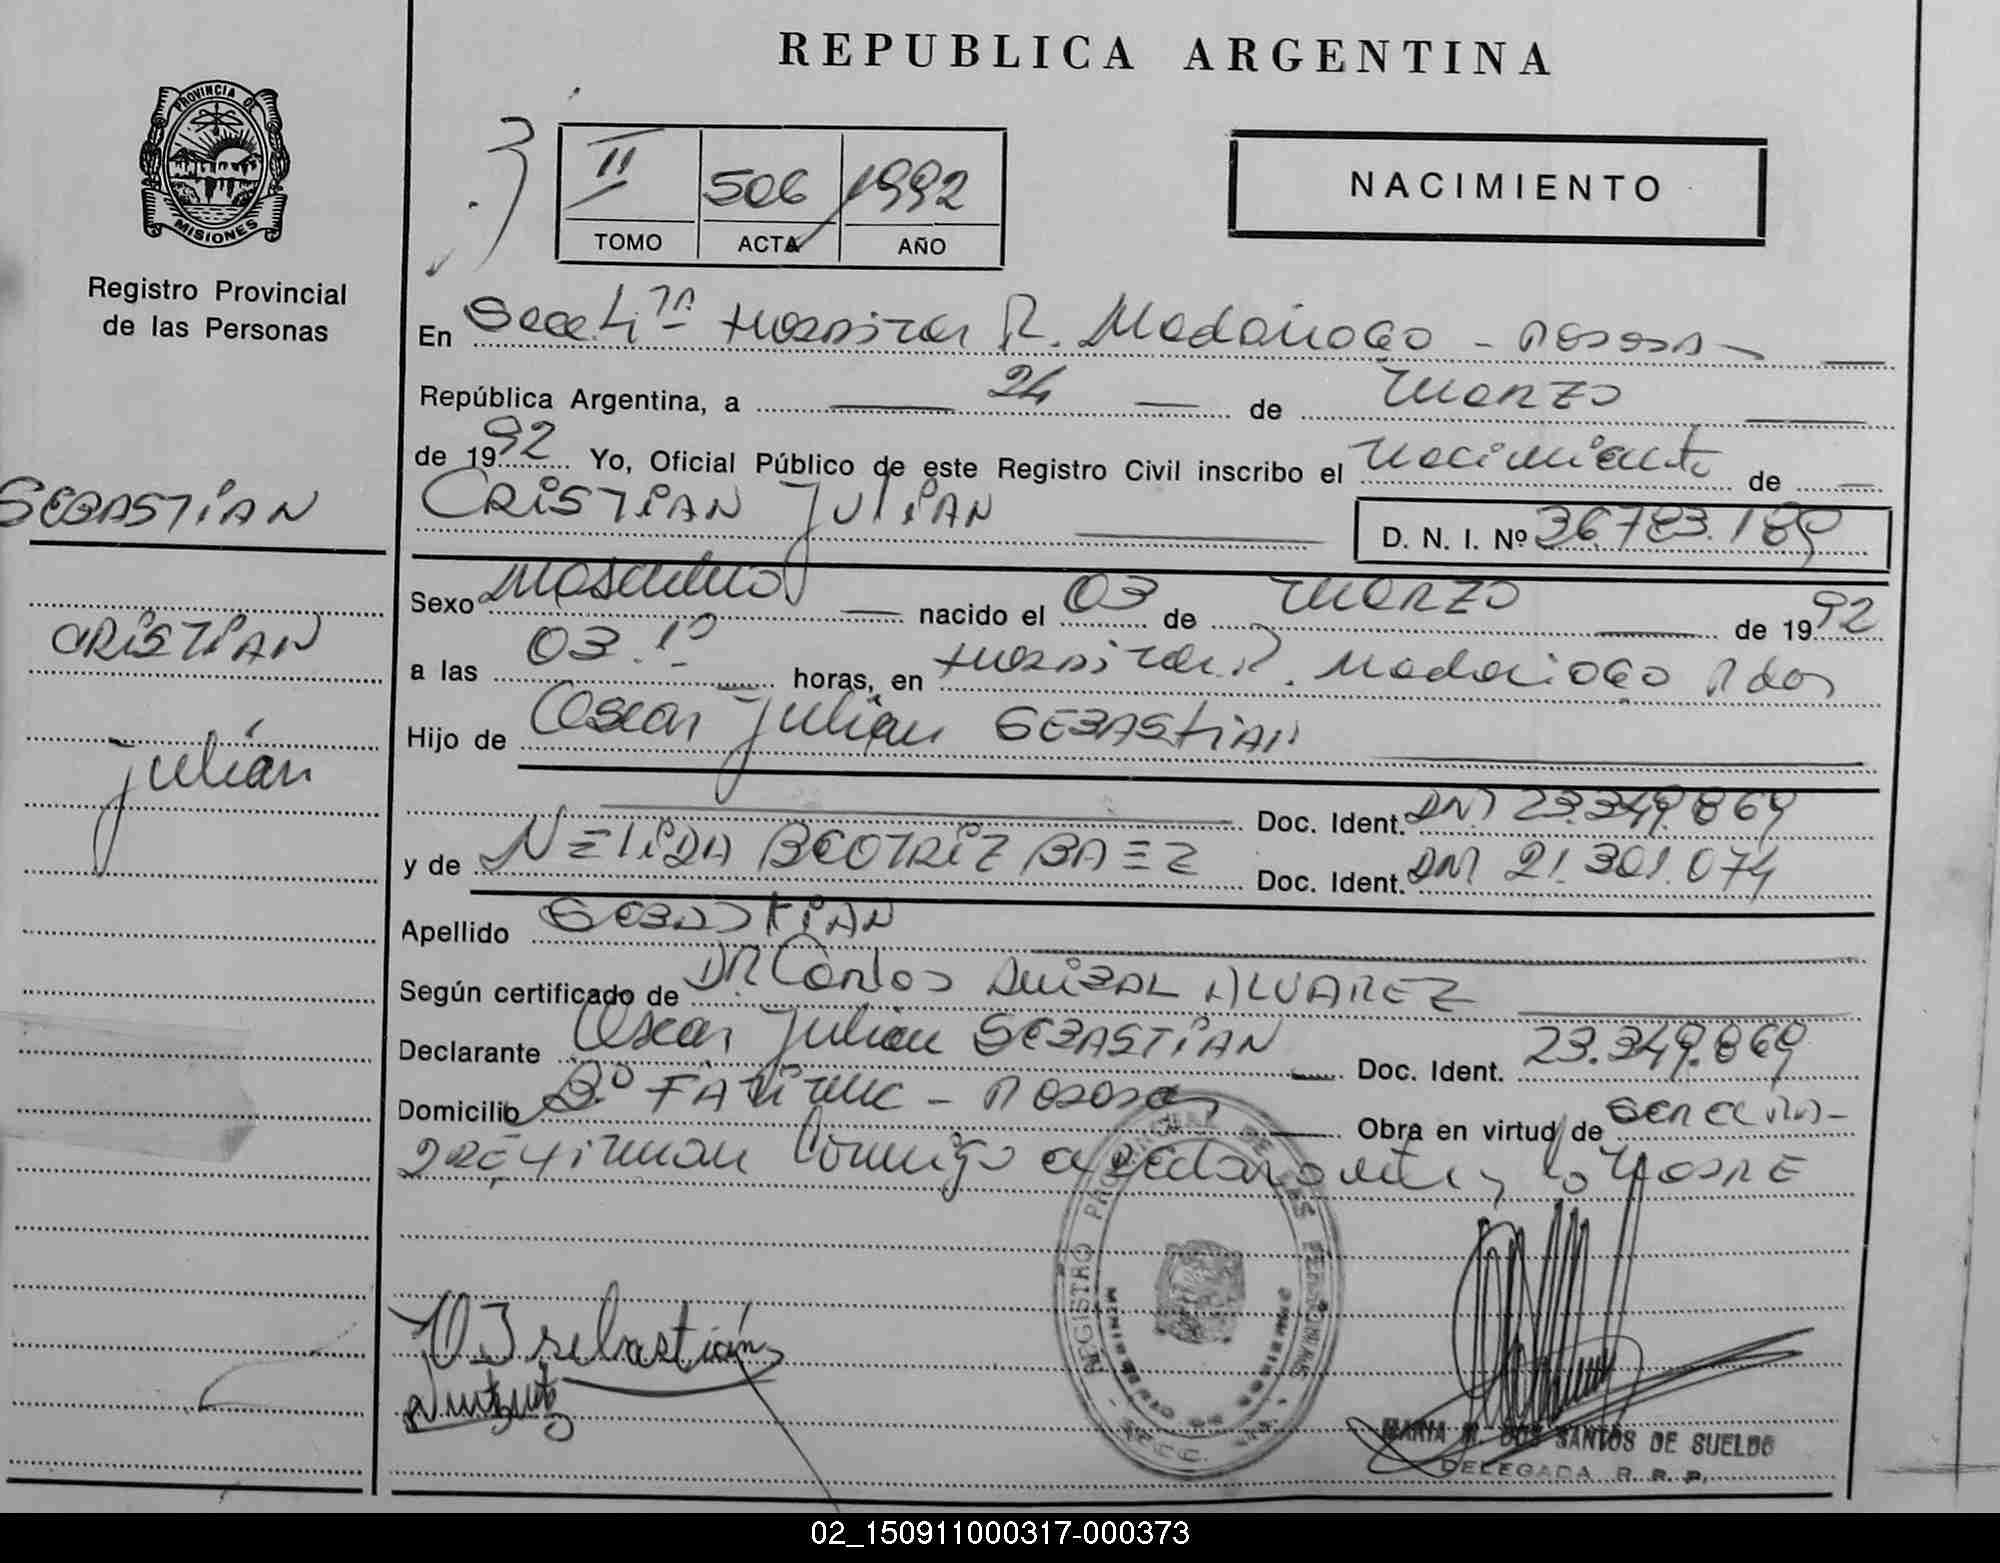 REPUBLICA ARGENTINA
PROVINCIA DE
MISIONES
Registro Provincial
de las Personas
II 506 1992
TOMO ACTA AÑO
NACIMIENTO
En Secc. 4ta Hospital R. Madariaga - Posadas
República Argentina, a 24 de Marzo
de 1992 Yo, Oficial Público de este Registro Civil inscribo el nacimiento de
CRISTIAN JULIAN D. N. I. Nº 36.783.189
SEBASTIAN
CRISTIAN
Julián
Sexo Masculino nacido el 03 de Marzo de 1992
a las 03.10 horas, en Hospital R. Madariaga Pdas
Hijo de Oscar Julián SEBASTIAN
Doc. Ident. DNI 23.349.869
y de NELIDA BEATRIZ BAEZ Doc. Ident. DNI 21.301.074
Apellido SEBASTIAN
Según certificado de DR Carlos ANIBAL ALVAREZ
Declarante Oscar Julián SEBASTIAN Doc. Ident. 23.349.869
Domicilio Bº FATIMA - Posadas Obra en virtud de
firman conmigo el declarante y la MADRE
REGISTRO PROVINCIAL DE LAS PERSONAS
OJ sebastián
MARIA DOS SANTOS DE SUELDO
DELEGADA R. R. P.
02_150911000317-000373